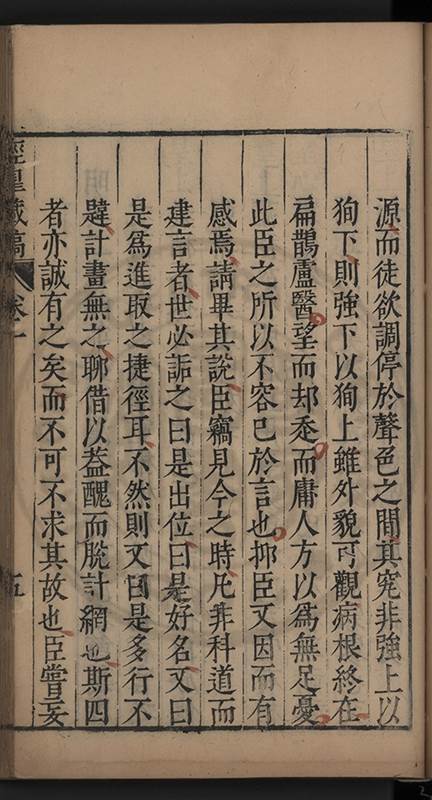 源而徒欲調停於聲色之間其究非強上以
狥下則強下以狥上雖外貌可觀病根終在
扁鵲盧醫望而却走而庸人方以為無足憂
此臣之所以不容已於言也抑臣又因而有
感焉請畢其說臣竊見今之時凡非科道而
建言者世必詬之曰是出位曰是好名又曰
是為進取之捷徑耳不然則又曰是多行不
韙計畫無之聊借以葢醜而脫計網也斯四
者亦誠有之矣而不可不求其故也臣嘗妄
涇皐藏稿 卷一 五